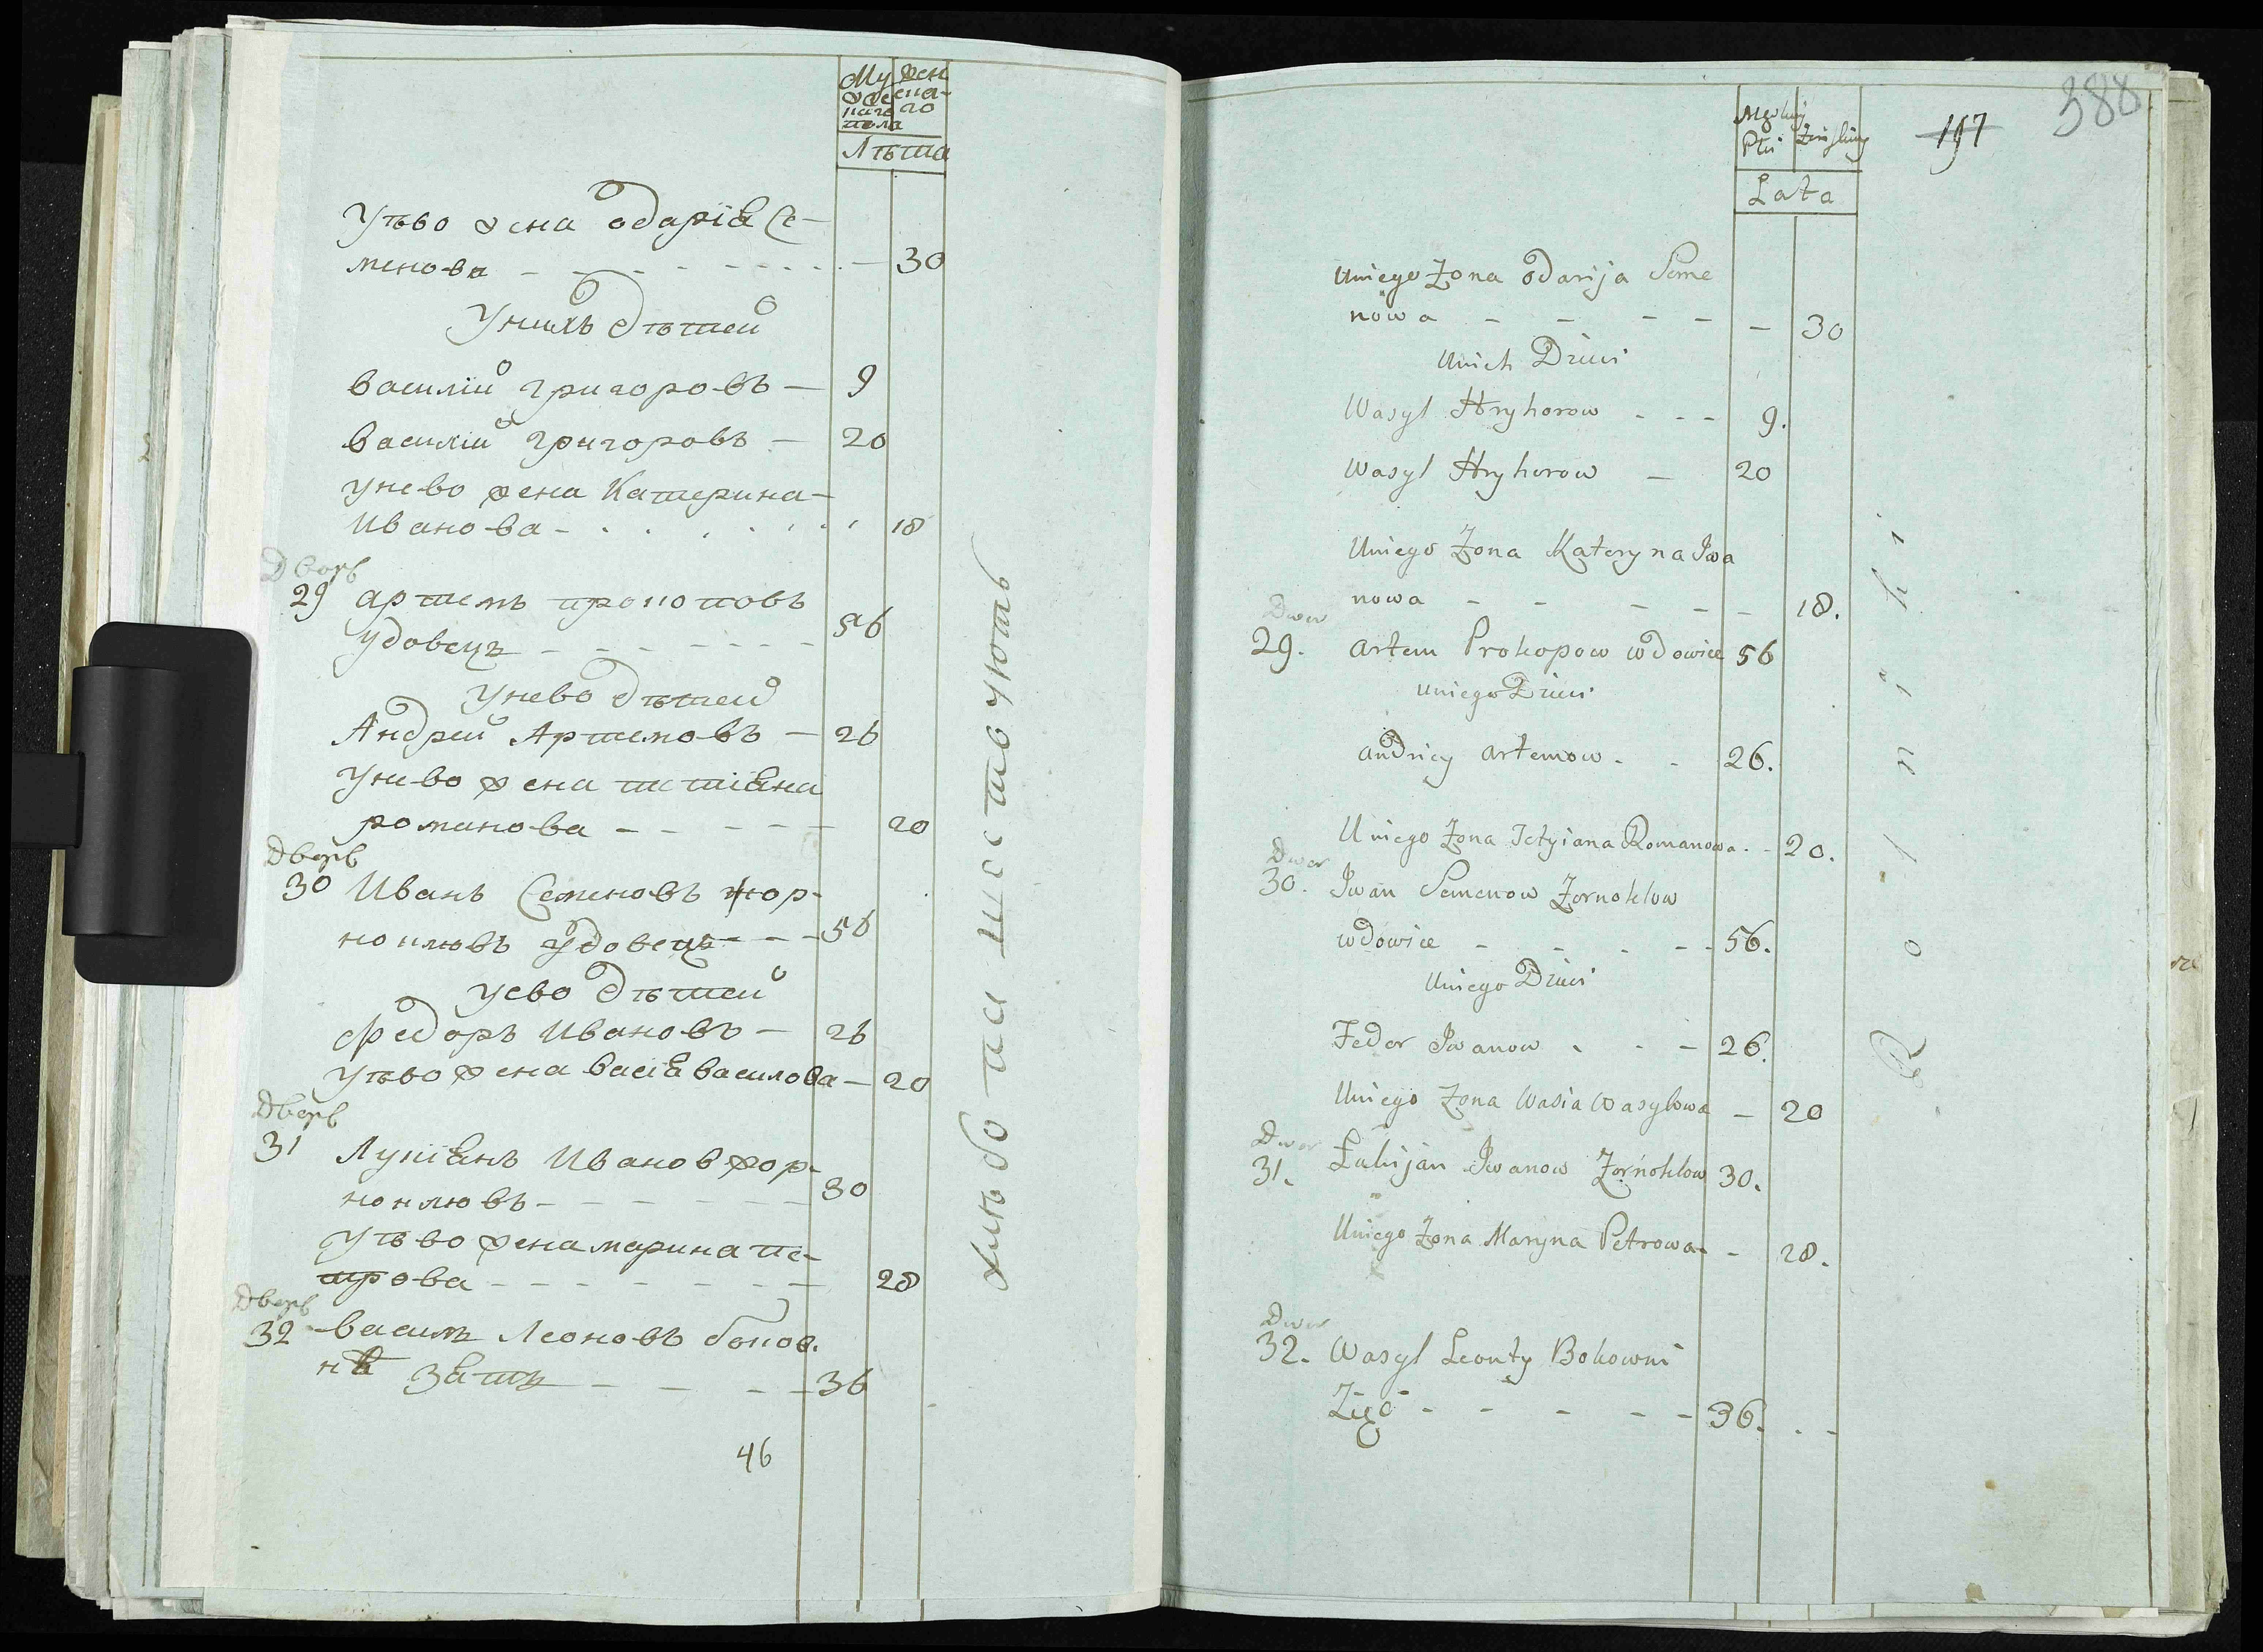 Му жен
жес ска-
каго го
пола
Лѣта
Уѣво жена одарія Се-
менова - - - - - - - 30
Унихъ дѣтей
василій григоровъ — 9
василій григоровъ — 20
унево жена Катерина-
Иванова - . . . . . . 18
Дворъ
29 артемъ прокоповъ
удовецъ - - - - - - - 56
Унево дѣтей
Андрей Артемовъ — 26
Унево жена тетіяна
романова - - - - - 20
Дворъ
30 Иванъ Семеновъ жор-
ноклювъ удовецъ - - - 56
Уево дѣтей
Федоръ Ивановъ — 26
Уѣво жена васія василова — 20
Дворъ
31 Лукіянъ Иванов жор-
ноклювъ - - - - - - 30
Уѣво жена марина пе-
трова - - - - - - - 28
Дворъ
32 василь Леоновъ боков.
нѣ зять - - - - 36
46
хлѣбопашествуютъ
388
197
Męskiej Żeńskiey
Płci
Lata
Uniego Żona Odarija Seme
nowa - - - - - 30
Unich Dzieci
Wasyl Hryhorow - - - 9.
Wasyl Hryhorow — 20
Uniego Żona Kateryna Iwa
nowa - - - - - 18.
Dwor
29. Artem Prokopow wdowiec 56
Uniego Dzieci
Andriey Artemow . . 26.
Uniego Żona Tetyiana Romanowa . - 20.
Dwor
30. Iwan Semenow Żornoklow
wdowiec - - - - - 56.
Uniego Dzieci
Fedor Iwanow . - - 26.
Uniego Żona Wasia Wasylowa - 20
Dwor
31. Łukijan Iwanow Żornoklow 30.
Uniego Żona Maryna Petrowa - - 28.
Dwor
32. Wasyl Leonty Bokowni
Zięć - - - - - 36. . -
Rolniki